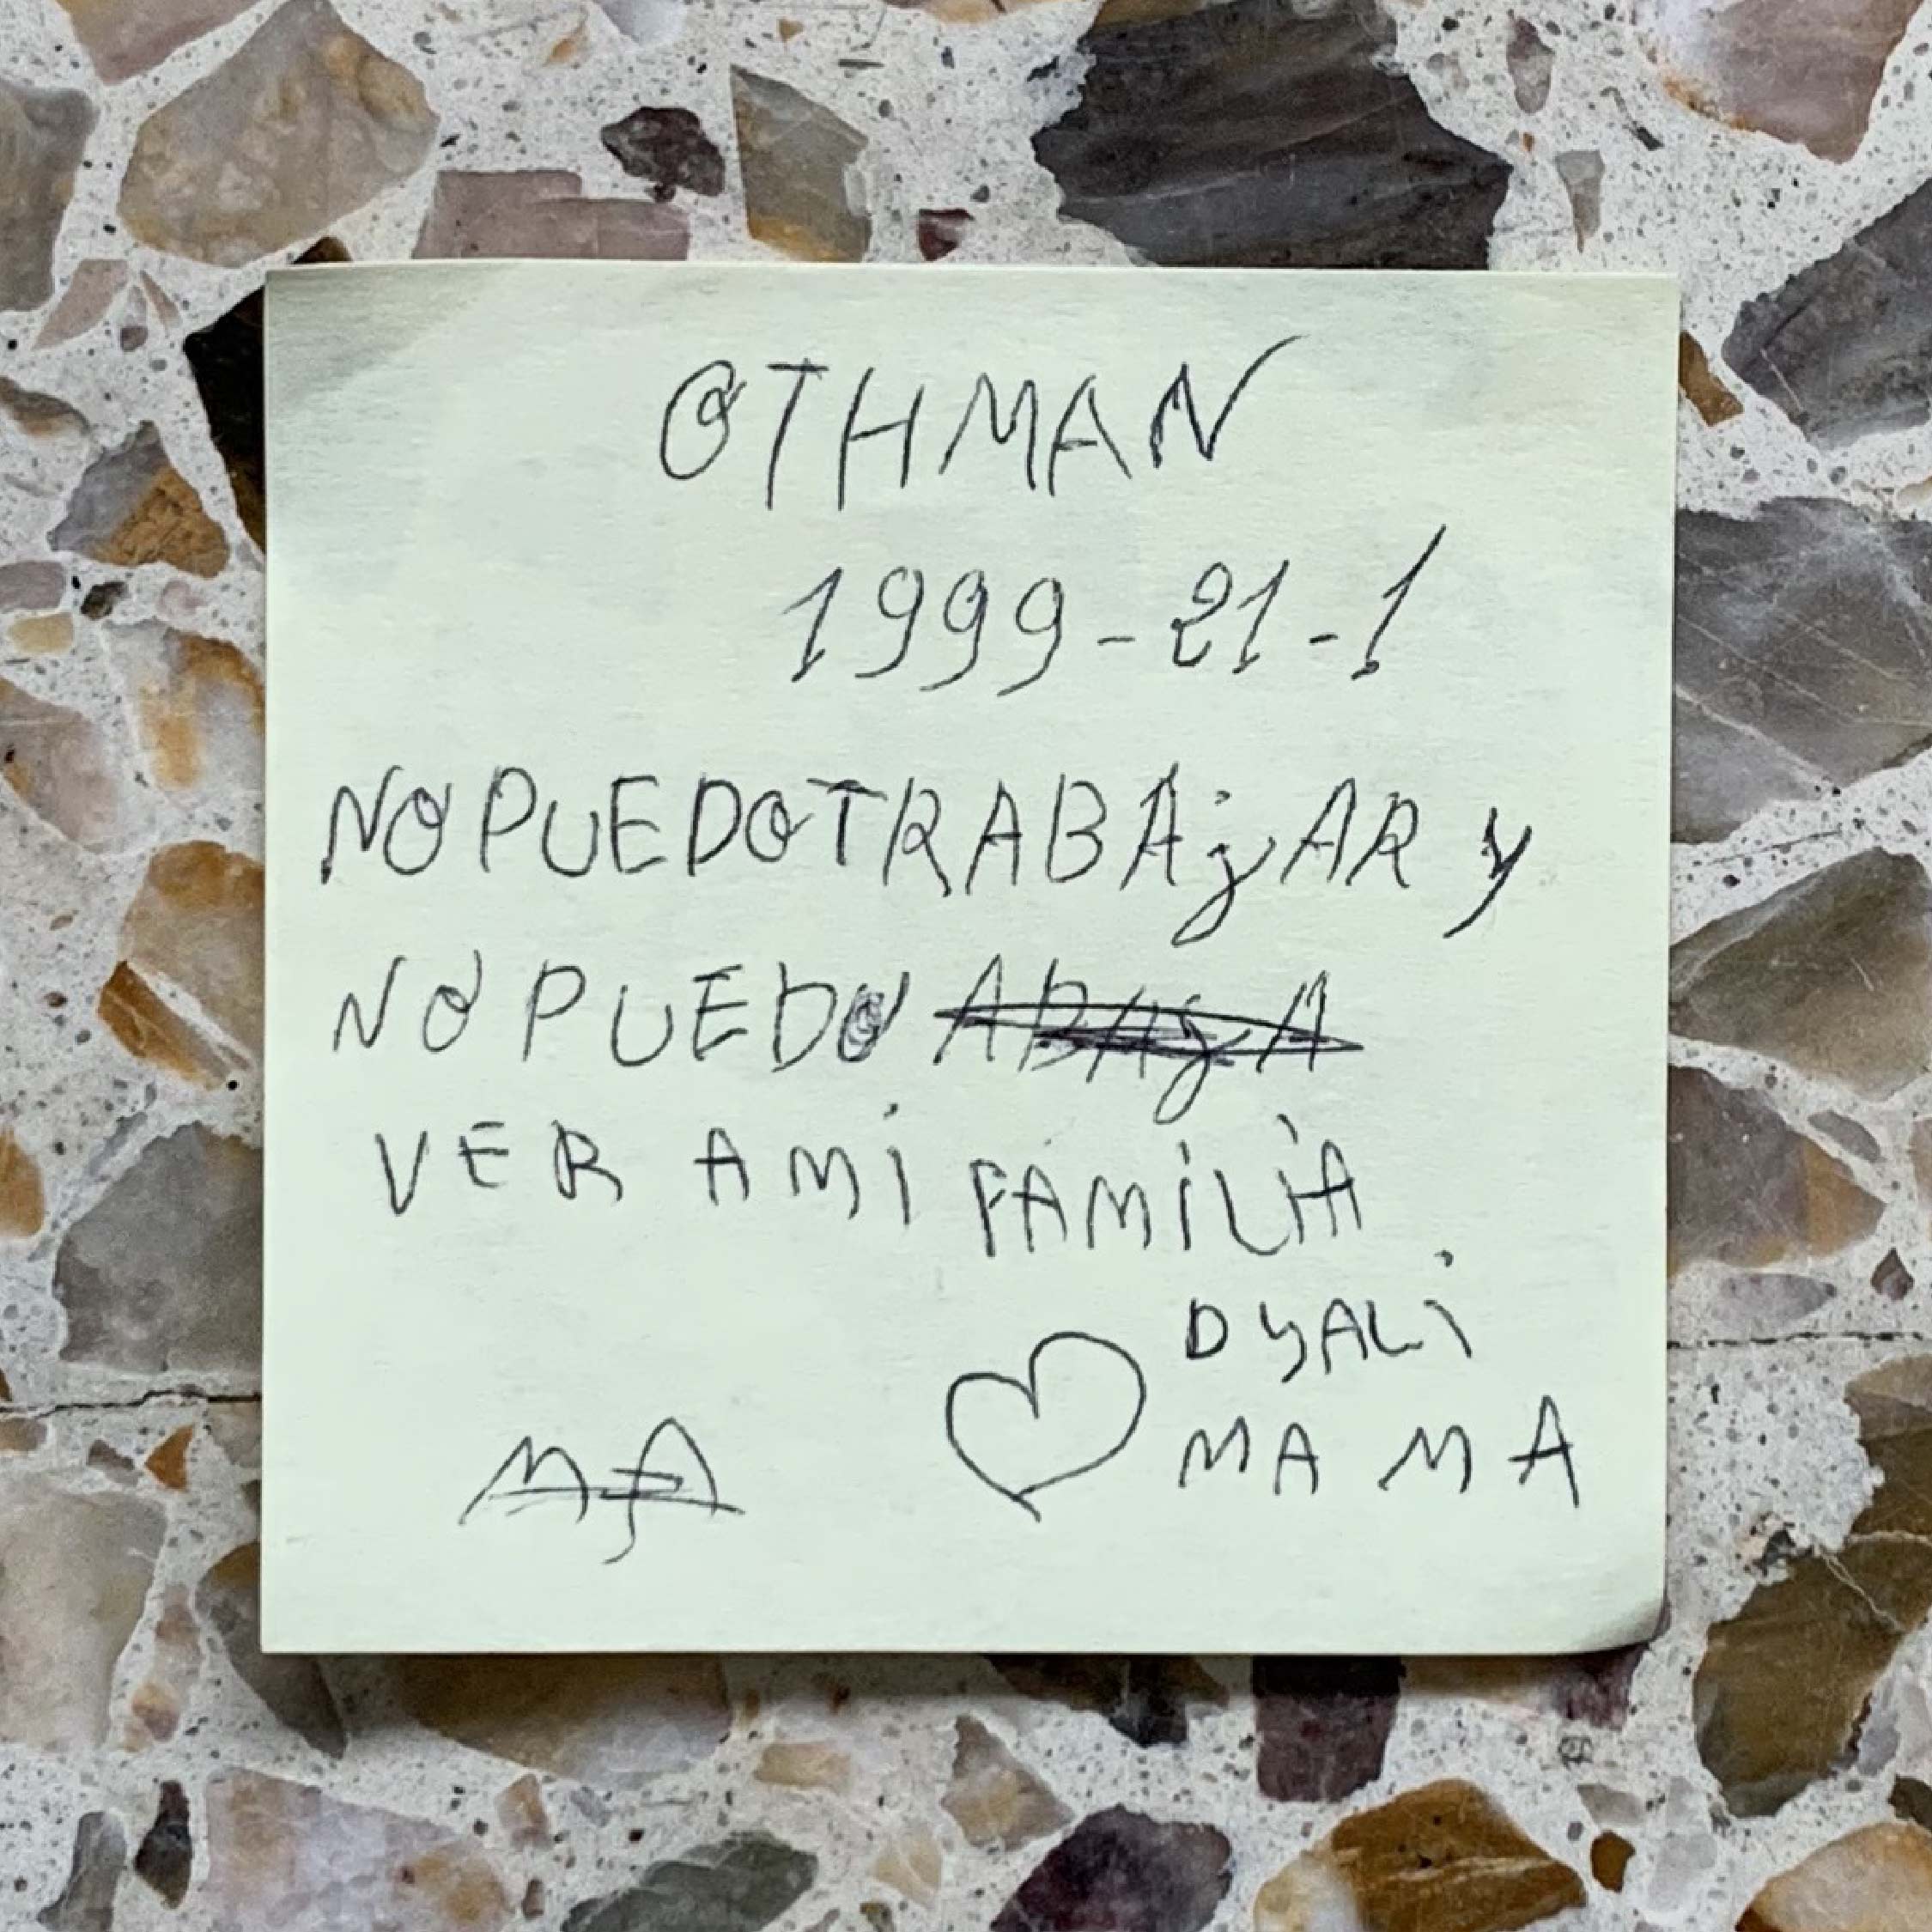 OTHMAN
1999-21-1
NO PUEDO TRABAjAR y
NO PUEDO
VER A Mi FAMiLiA
DyALi
MAMA